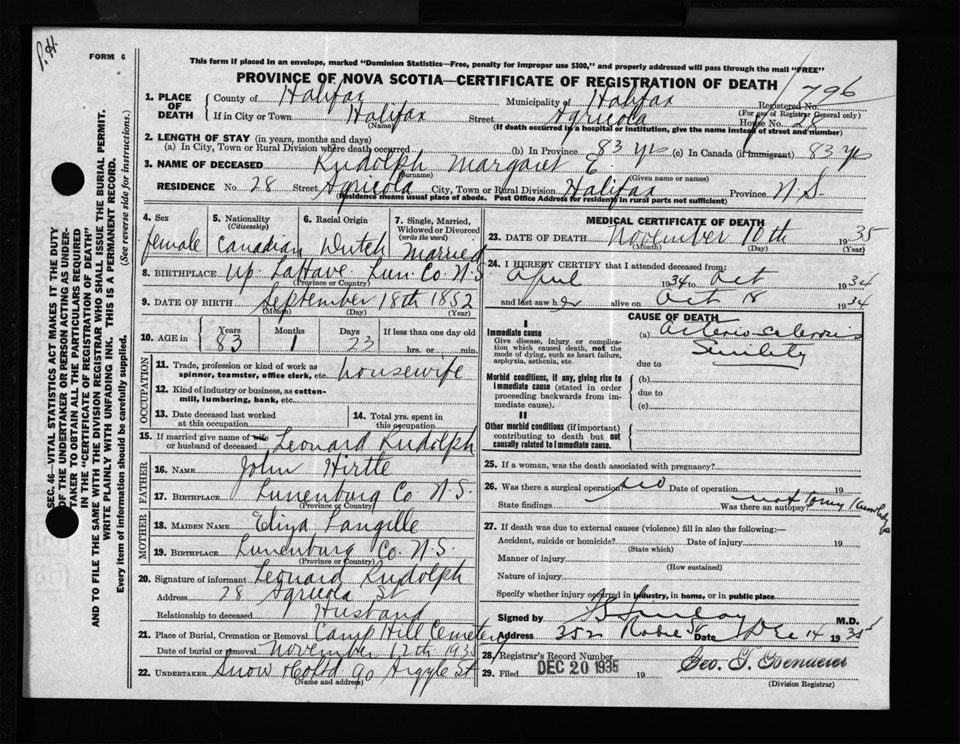 P. H.
FORM 6
This form if placed in an envelope, marked "Dominion Statistics—Free, penalty for improper use $300," and properly addressed will pass through the mail "FREE"
PROVINCE OF NOVA SCOTIA—CERTIFICATE OF REGISTRATION OF DEATH
796
1. PLACE OF DEATH
County of Halifax Municipality of Halifax Registered No.
(For use of Registrar General only)
If in City or Town Halifax Street Agricola House No. 28
(Name) (If death occurred in a hospital or institution, give the name instead of street and number)
2. LENGTH OF STAY (in years, months and days)
(a) In City, Town or Rural Division where death occurred (b) In Province 83 yrs (c) In Canada (if immigrant) 83 yrs
3. NAME OF DECEASED Rudolph Margaret E.
(Surname) (Given name or names)
RESIDENCE No. 28 Street Agricola City, Town or Rural Division Halifax Province N.S.
(Residence means usual place of abode. Post Office Address for residents in rural parts not sufficient)
SEC. 46—VITAL STATISTICS ACT MAKES IT THE DUTY
OF THE UNDERTAKER OR PERSON ACTING AS UNDER-
TAKER TO OBTAIN ALL THE PARTICULARS REQUIRED
IN THE "CERTIFICATE OF REGISTRATION OF DEATH"
AND TO FILE THE SAME WITH THE DIVISION REGISTRAR WHO SHALL ISSUE THE BURIAL PERMIT.
WRITE PLAINLY WITH UNFADING INK. THIS IS A PERMANENT RECORD.
Every item of information should be carefully supplied. (See reverse side for instructions.)
4. Sex female
5. Nationality (Citizenship) Canadian
6. Racial Origin Dutch
7. Single, Married, Widowed or Divorced (write the word) Married
8. BIRTHPLACE Up. LaHave Lun. Co. N.S.
(Province or Country)
9. DATE OF BIRTH September 18th 1852
(Month) (Day) (Year)
10. AGE in Years 83 Months 1 Days 23 If less than one day old hrs. or min.
OCCUPATION
11. Trade, profession or kind of work as spinner, teamster, office clerk, etc. housewife
12. Kind of industry or business, as cotton-mill, lumbering, bank, etc.
13. Date deceased last worked at this occupation
14. Total yrs. spent in this occupation
15. If married give name of wife or husband of deceased Leonard Rudolph
FATHER
16. NAME John Hirtle
17. BIRTHPLACE Lunenburg Co. N.S.
(Province or Country)
MOTHER
18. MAIDEN NAME Eliza Langille
19. BIRTHPLACE Lunenburg Co. N.S.
(Province or Country)
20. Signature of informant Leonard Rudolph
Address 28 Agricola St
Relationship to deceased Husband
21. Place of Burial, Cremation or Removal Camp Hill Cemetery
Date of burial or removal November 12th 1935
22. UNDERTAKER Snow Co Ltd 90 Argyle St
(Name and address)
MEDICAL CERTIFICATE OF DEATH
23. DATE OF DEATH November 10th 1935
(Month) (Day) (Year)
24. I HEREBY CERTIFY that I attended deceased from:
April 1934 to Oct 1934
and last saw her alive on Oct 18 1934
CAUSE OF DEATH
I
Immediate cause
Give disease, injury or complication which caused death, not the mode of dying, such as heart failure, asphyxia, asthenia, etc.
(a) Arterio-sclerosis
Senility
due to
Morbid conditions, if any, giving rise to immediate cause (stated in order proceeding backwards from immediate cause).
(b)
due to
(c)
II
Other morbid conditions (if important) contributing to death but not causally related to immediate cause.
25. If a woman, was the death associated with pregnancy?
26. Was there a surgical operation? No Date of operation 19
State findings Was there an autopsy? not to my knowledge
27. If death was due to external causes (violence) fill in also the following:—
Accident, suicide or homicide? Date of injury 19
(State which)
Manner of injury
(How sustained)
Nature of injury
Specify whether injury occurred in industry, in home, or in public place
Signed by M.D.
Address 352 Robie St Date Dec 14 1935
28. Registrar's Record Number
29. Filed DEC 20 1935 19
(Division Registrar)